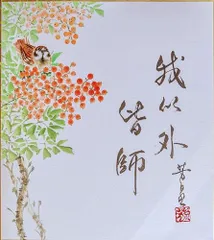 我以外
皆師